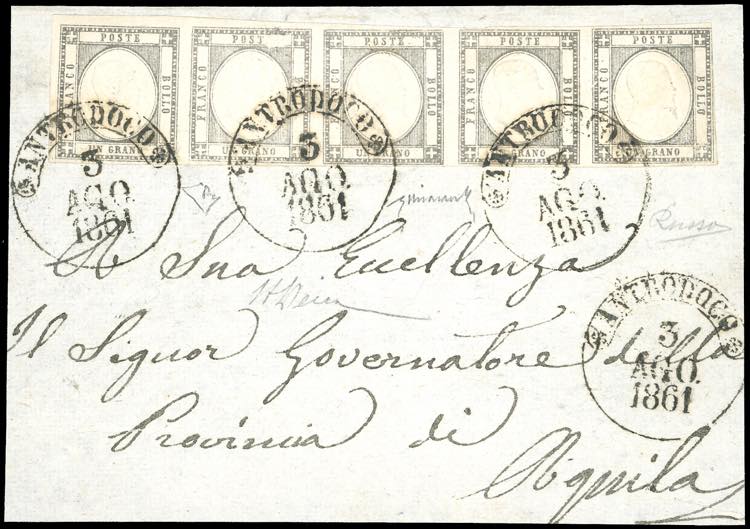 POSTE POSTE POSTE POSTE POSTE
FRANCO BOLLO FRANCO BOLLO FRANCO BOLLO FRANCO BOLLO FRANCO BOLLO
UN GRANO UN GRANO UN GRANO UN GRANO UN GRANO
ANTRODOCO ANTRODOCO ANTRODOCO
3 3 3
AGO. AGO. AGO.
1861 1861 1861
Russo
A Sua Eccellenza
Il Signor Governatore della
Provincia di
Aquila
ANTRODOCO
3
AGO.
1861